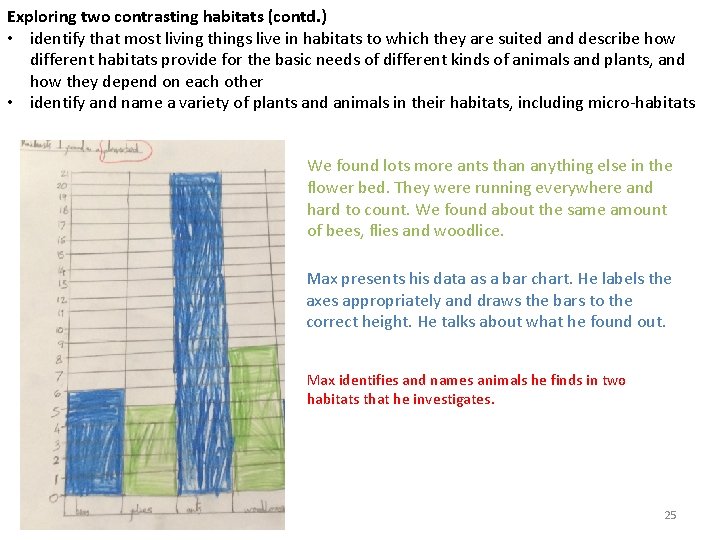 Exploring two contrasting habitats (contd.)
• identify that most living things live in habitats to which they are suited and describe how
different habitats provide for the basic needs of different kinds of animals and plants, and
how they depend on each other
• identify and name a variety of plants and animals in their habitats, including micro-habitats
We found lots more ants than anything else in the
flower bed. They were running everywhere and
hard to count. We found about the same amount
of bees, flies and woodlice.
Max presents his data as a bar chart. He labels the
axes appropriately and draws the bars to the
correct height. He talks about what he found out.
Max identifies and names animals he finds in two
habitats that he investigates.
I found in a
21
20
19
18
17
16
15
14
13
12
11
10
9
8
7
6
5
4
3
2
1
0
bees flies ants
25